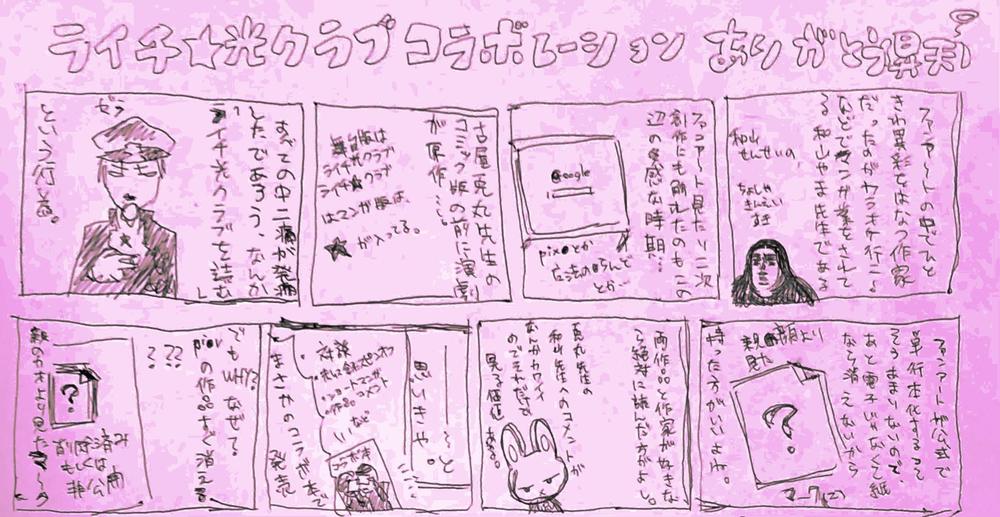 ライチ☆光クラブ コラボレーション ありがとう昇天
すべての中二病が発病
したであろう、なんか
ライチ光クラブを読む
という行為。
ゼラ
古屋兎丸先生の
コミック版の前に演劇
が原作…。
舞台版は
ライチ光クラブ
ライチ★光クラブ
はマンガ版は、
★が入ってる。
ファンアート見たり二次
創作にも触れたのもこの
辺の多感な時期…
Google
pix●とか
魔法の●らんど
とか…
ファンアートの中でひと
きわ異彩をはなつ作家
だったのが
る和山やま先生である
和山
せんせいの
でもなぜ
WHY?
pixvの作品すぐ消える
???
?
削除済み
もしくは
非公開
親のカオより見たマーク
と思いきや
〜と
。
対談
ショートマンガ
作品コメント
など
まさかのコラボ本で
発売
両作品と作家が好きな
ら絶対に読んだ方がよし。
兎丸先生の
和山先生へのコメントが
なんかカワイイ
のでそれだけで
見る価値ある。
ファンアートが公式で
単行本化すること
そうそうまぁないので、
あと電子じゃなくて紙
なら消えないから
持った方がいいよね。
親の顔より
見た
?
マーク(2)